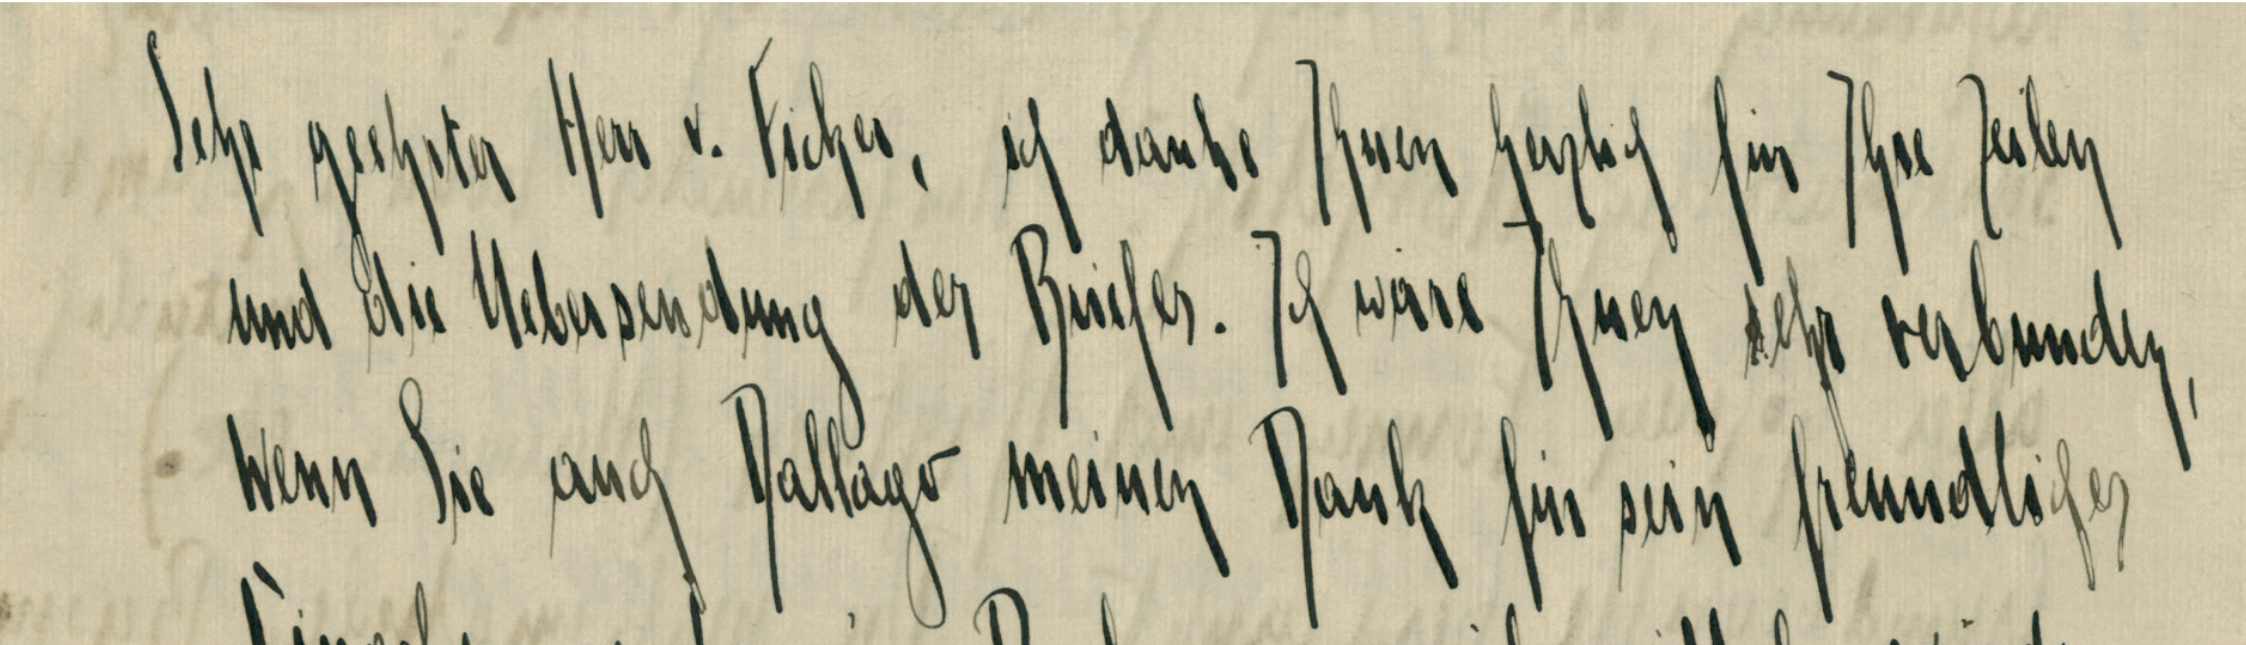 Sehr geehrter Herr v. Ficker, ich danke Ihnen herzlich für Ihre Zeilen
und die Uebersendung der Briefes. Ich wäre Ihnen sehr verbunden,
wenn Sie auch Dallago meinen Dank für sein freundliches